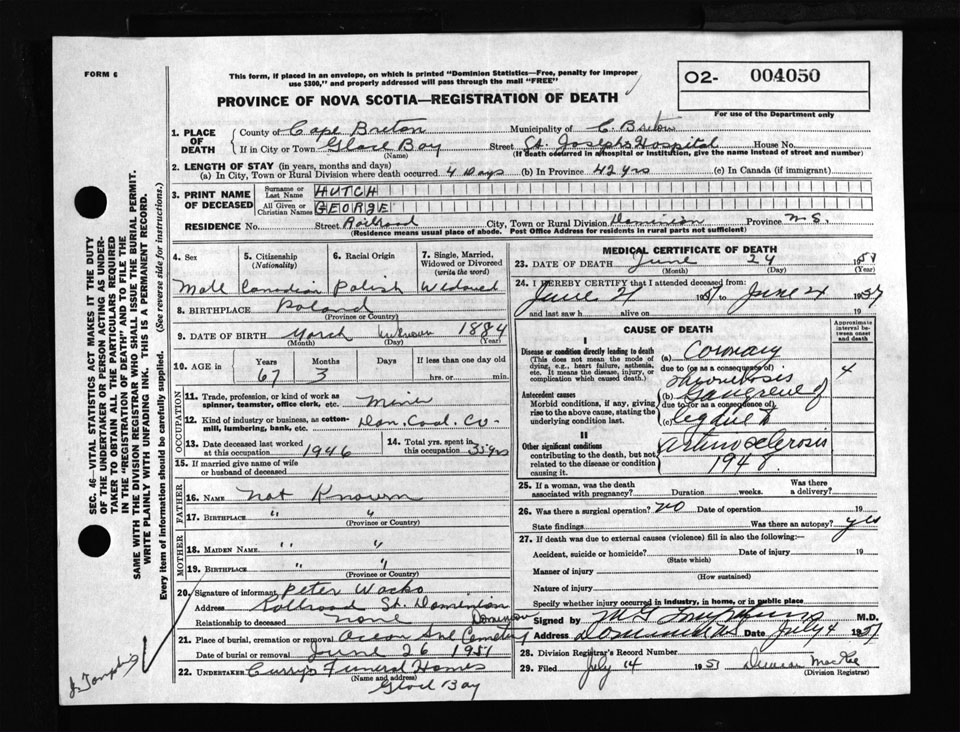 FORM 6
This form, if placed in an envelope, on which is printed "Dominion Statistics—Free, penalty for improper
use $300," and properly addressed will pass through the mail "FREE"
O2- 004050
For use of the Department only
PROVINCE OF NOVA SCOTIA—REGISTRATION OF DEATH
1. PLACE OF DEATH
County of Cape Breton Municipality of C. Breton
If in City or Town Glace Bay Street St. Joseph's Hospital House No.
(Name) (If death occurred in a hospital or institution, give the name instead of street and number)
2. LENGTH OF STAY (in years, months and days)
(a) In City, Town or Rural Division where death occurred 4 Days (b) In Province 42 yrs (c) In Canada (if immigrant)
3. PRINT NAME OF DECEASED
Surname or Last Name HUTCH
All Given or Christian Names GEORGE
RESIDENCE No. Street Railroad City, Town or Rural Division Dominion Province N.S.
(Residence means usual place of abode. Post Office Address for residents in rural parts not sufficient)
4. Sex
Male
5. Citizenship (Nationality)
Canadian
6. Racial Origin
Polish
7. Single, Married, Widowed or Divorced (write the word)
Widowed
8. BIRTHPLACE Poland
(Province or Country)
9. DATE OF BIRTH March unknown 1884
(Month) (Day) (Year)
10. AGE in Years Months Days If less than one day old
67 3 hrs. or min.
OCCUPATION
11. Trade, profession, or kind of work as spinner, teamster, office clerk, etc. Miner
12. Kind of industry or business, as cotton-mill, lumbering, bank, etc. Dom. Coal. Co.
13. Date deceased last worked at this occupation 1946
14. Total yrs. spent in this occupation 35 yrs
15. If married give name of wife or husband of deceased
FATHER
16. NAME Not Known
17. BIRTHPLACE " "
(Province or Country)
MOTHER
18. MAIDEN NAME " "
19. BIRTHPLACE " "
(Province or Country)
20. Signature of informant Peter Wacko
Address Railroad St. Dominion
Relationship to deceased none Dominion
21. Place of burial, cremation or removal Ocean Ave Cemetery
Date of burial or removal June 26 1951
22. UNDERTAKER Curry's Funeral Homes
(Name and address)
Glace Bay
MEDICAL CERTIFICATE OF DEATH
23. DATE OF DEATH June 24 1951
(Month) (Day) (Year)
24. I HEREBY CERTIFY that I attended deceased from:
June 21 1951 to June 24 1951
and last saw h alive on 19
CAUSE OF DEATH
Approximate interval between onset and death
I
Disease or condition directly leading to death
(This does not mean the mode of dying, e.g., heart failure, asthenia, etc. It means the disease, injury, or complication which caused death.)
(a) Coronary
due to (or as a consequence of)
Thrombosis 4
Antecedent causes
Morbid conditions, if any, giving rise to the above cause, stating the underlying condition last.
(b) Gangrene of
due to (or as a consequence of)
(c)
II
Other significant conditions
contributing to the death, but not related to the disease or condition causing it.
1948
25. If a woman, was the death associated with pregnancy? Duration weeks. Was there a delivery?
26. Was there a surgical operation? NO Date of operation 19
State findings Was there an autopsy? yes
27. If death was due to external causes (violence) fill in also the following:—
Accident, suicide or homicide? Date of injury 19
(State which)
Manner of injury
(How sustained)
Nature of injury
Specify whether injury occurred in industry, in home, or in public place
Signed by M.D.
Address Dominion N.S. Date July 4 1951
28. Division Registrar's Record Number
29. Filed July 14 1951 Duncan MacKee
(Division Registrar)
SEC. 46—VITAL STATISTICS ACT MAKES IT THE DUTY
OF THE UNDERTAKER OR PERSON ACTING AS UNDER-
TAKER TO OBTAIN ALL THE PARTICULARS REQUIRED
IN THE "REGISTRATION OF DEATH" AND TO FILE THE
SAME WITH THE DIVISION REGISTRAR WHO SHALL ISSUE THE BURIAL PERMIT.
WRITE PLAINLY WITH UNFADING INK. THIS IS A PERMANENT RECORD.
Every item of information should be carefully supplied. (See reverse side for instructions.)